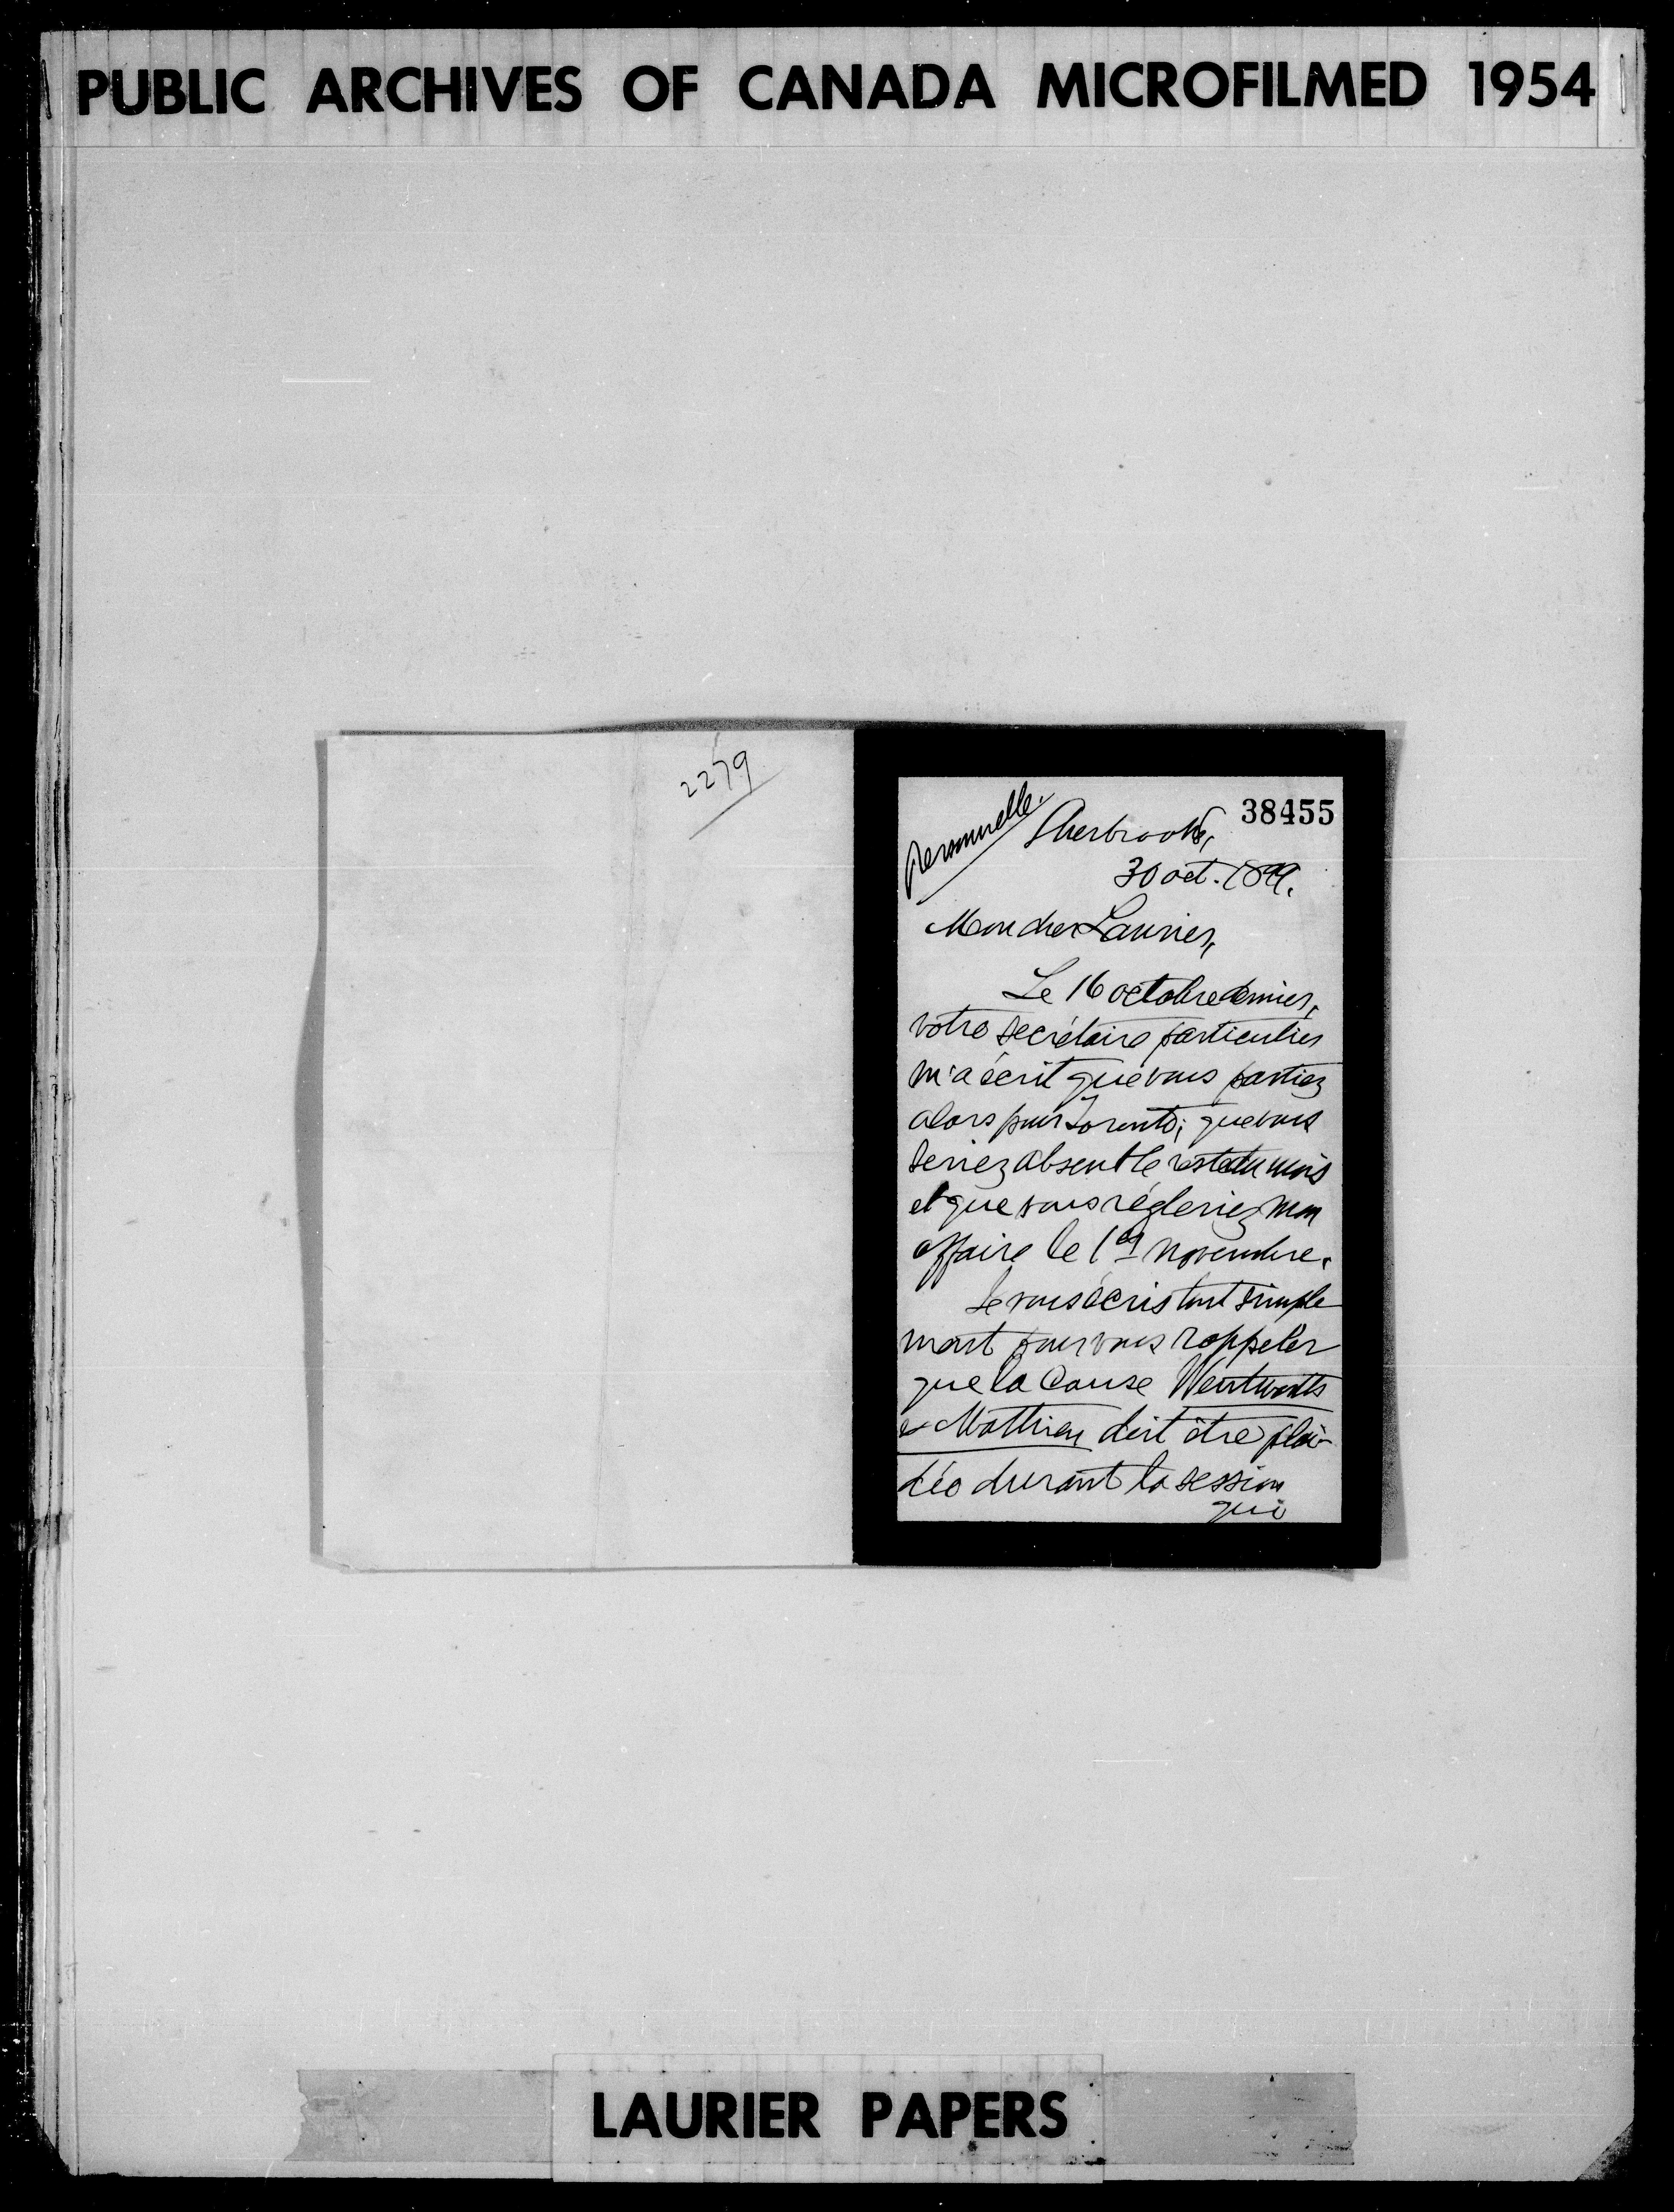 PUBLIC ARCHIVES OF CANADA MICROFILMED 1954
2279
38455
Personnelle.
Sherbrooke,
30 oct. 1899.
Mon cher Laurier,
Le 16 octobre dernier,
votre secrétaire particulier
m'a écrit que vous partiez
alors pour Toronto; que vous
seriez absent le reste du mois
et que vous régleriez mon
affaire le 1er novembre.
Je vous écris tout simple
ment pour vous rappeler
que la cause Wentworth
& Mathieu doit être plai-
dée durant la session
qui
LAURIER PAPERS